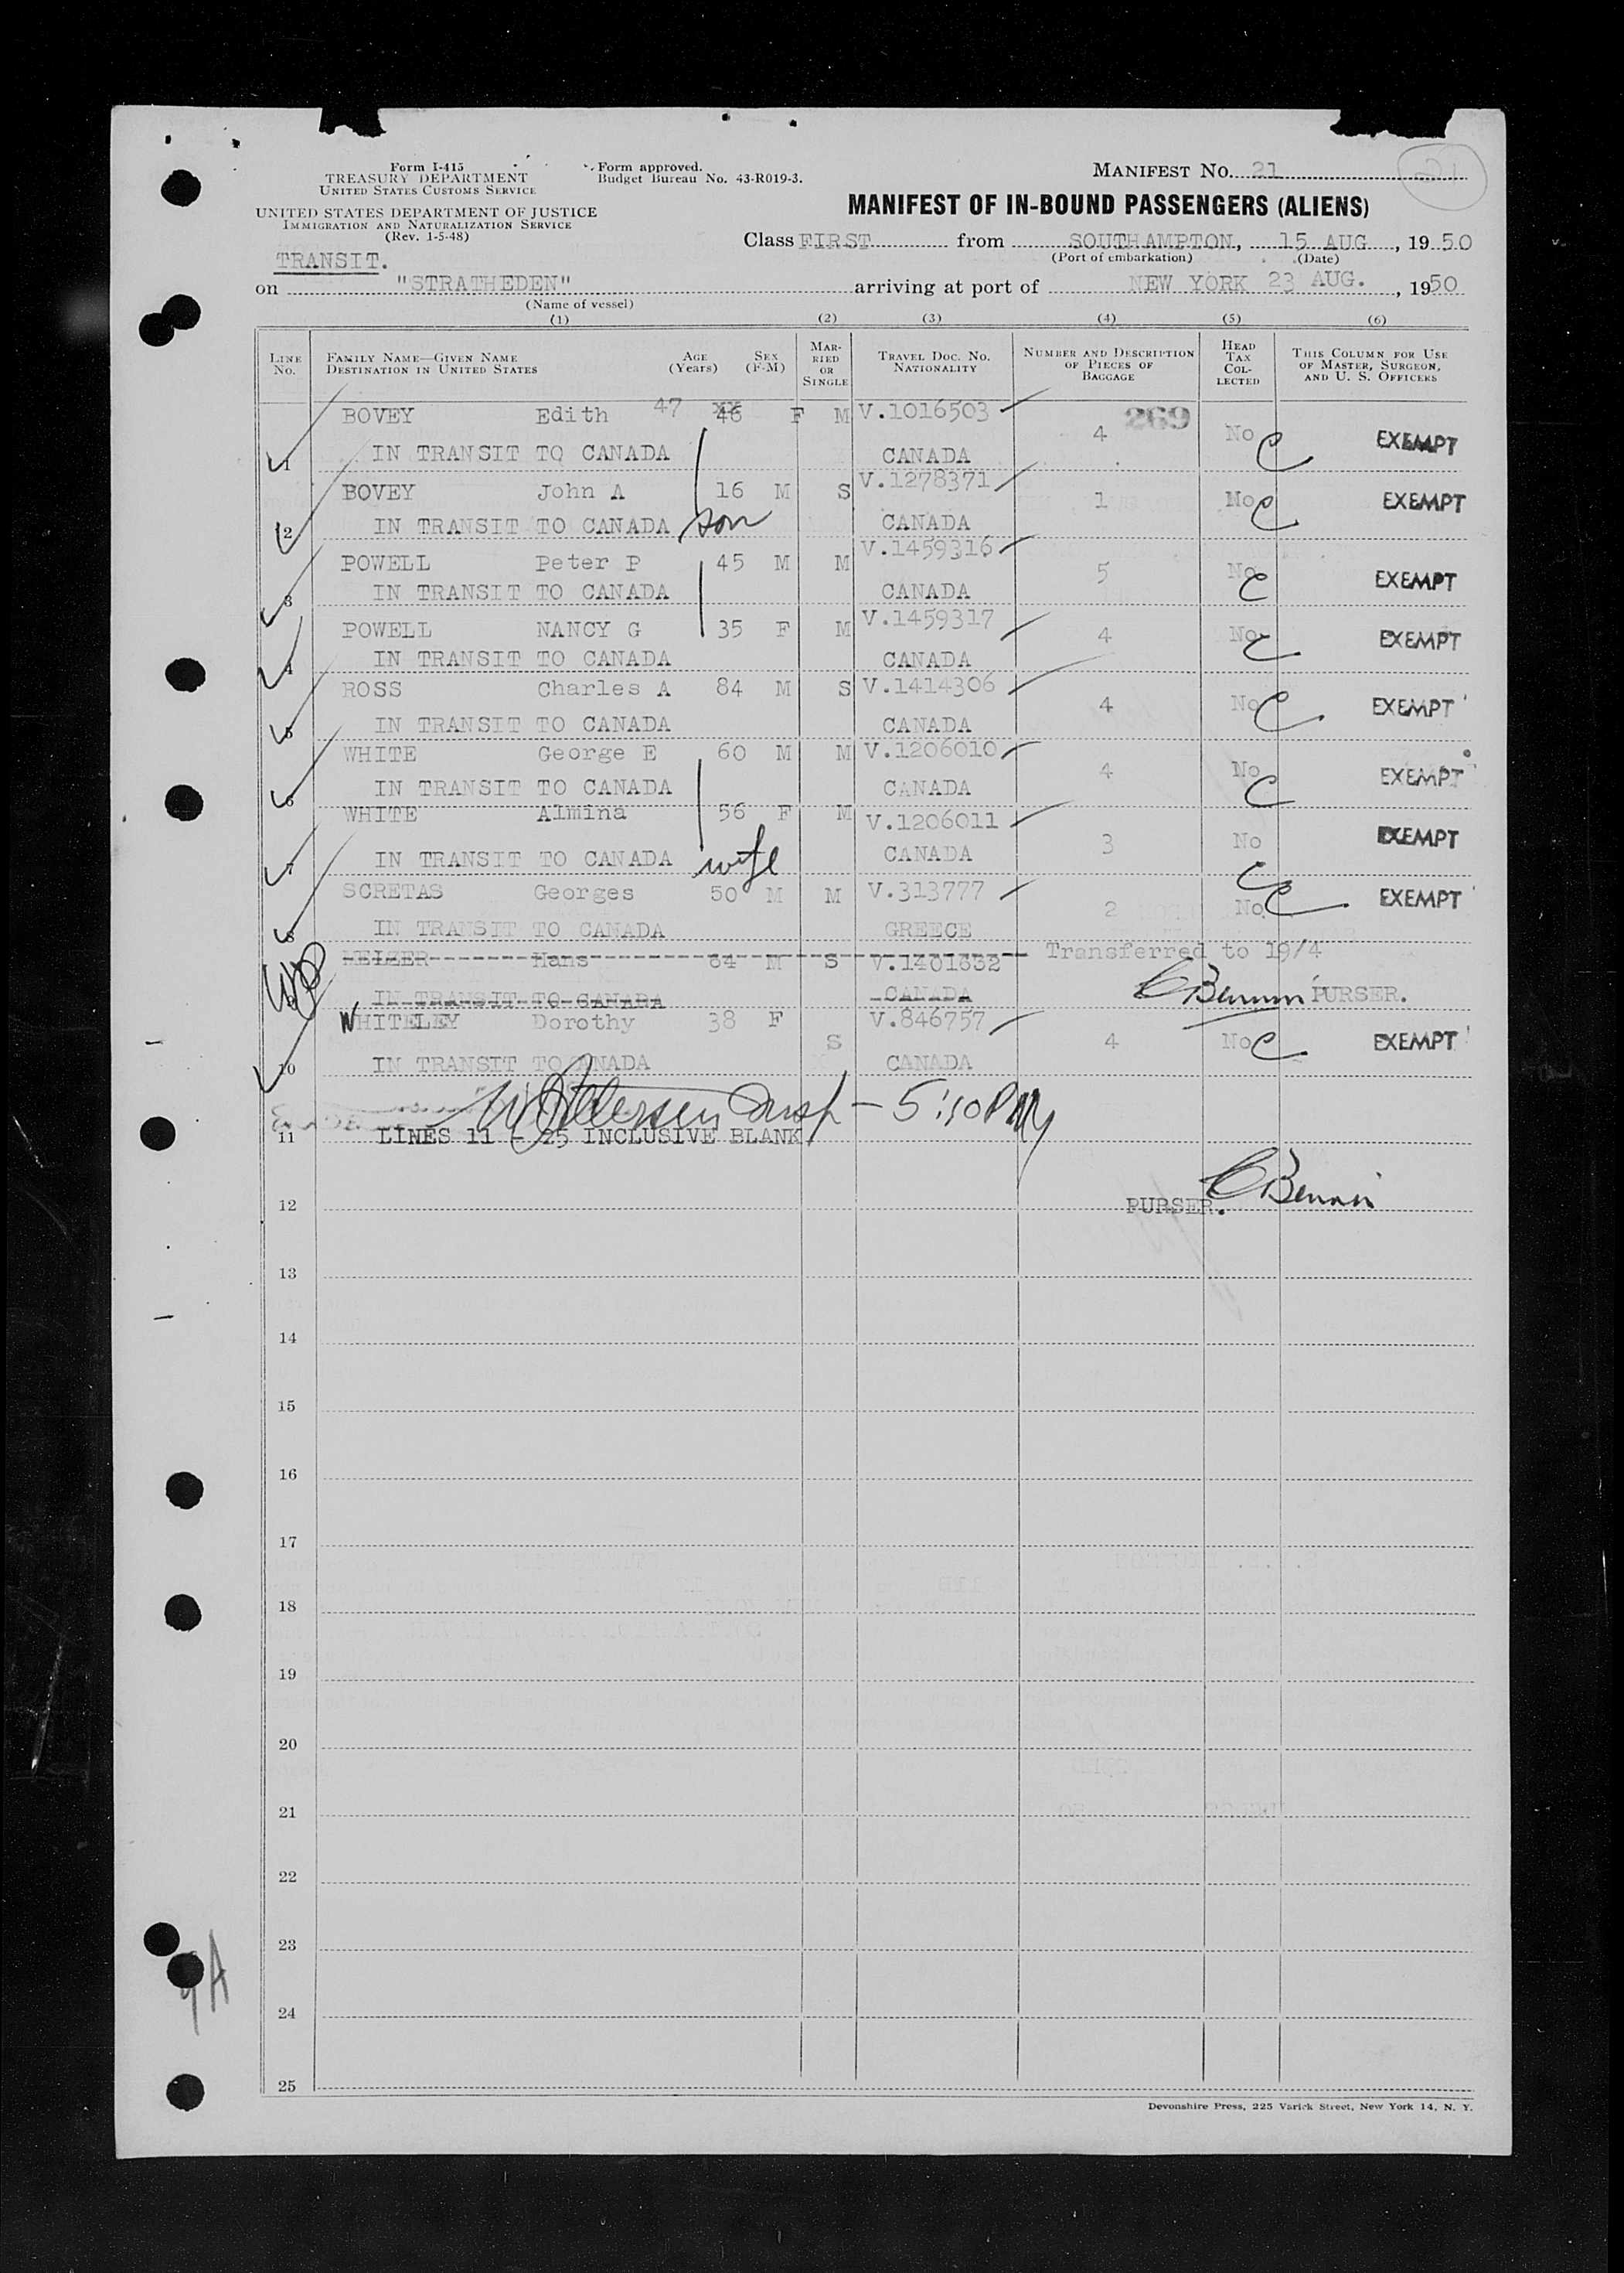 Form I-415
TREASURY DEPARTMENT
UNITED STATES CUSTOMS SERVICE
Form approved.
Budget Bureau No. 43-R019-3.
MANIFEST NO. 21
21
UNITED STATES DEPARTMENT OF JUSTICE
IMMIGRATION AND NATURALIZATION SERVICE
(Rev. 1-5-48)
MANIFEST OF IN-BOUND PASSENGERS (ALIENS)
Class FIRST from SOUTHAMPTON, 15 AUG, 1950
(Port of embarkation) (Date)
TRANSIT.
on "STRATHEDEN" arriving at port of NEW YORK 23 AUG., 1950
(Name of vessel)
(1) (2) (3) (4) (5) (6)
LINE NO. FAMILY NAME—GIVEN NAME DESTINATION IN UNITED STATES AGE (Years) SEX (F-M) MARRIED OR SINGLE TRAVEL DOC. NO. NATIONALITY NUMBER AND DESCRIPTION OF PIECES OF BAGGAGE HEAD TAX COLLECTED THIS COLUMN FOR USE OF MASTER, SURGEON, AND U. S. OFFICERS
BOVEY Edith 47 46 F M V.1016503 4 269 No C EXEMPT
1 IN TRANSIT TO CANADA CANADA
BOVEY John A 16 M S V.1278371 1 No C EXEMPT
2 IN TRANSIT TO CANADA son CANADA
POWELL Peter P 45 M M V.1459316 5 No C EXEMPT
3 IN TRANSIT TO CANADA CANADA
POWELL NANCY G 35 F M V.1459317 4 No C EXEMPT
4 IN TRANSIT TO CANADA CANADA
ROSS Charles A 84 M S V.1414306 4 No C EXEMPT
5 IN TRANSIT TO CANADA CANADA
WHITE George E 60 M M V.1206010 4 No C EXEMPT
6 IN TRANSIT TO CANADA CANADA
WHITE Almina 56 F M V.1206011 3 No C EXEMPT
7 IN TRANSIT TO CANADA wife CANADA
SCRETAS Georges 50 M M V.313777 2 No C EXEMPT
8 IN TRANSIT TO CANADA GREECE
Hans 64 M S V.1401632 Transferred to 19/4
IN TRANSIT TO CANADA CANADA PURSER.
WHITELEY Dorothy 38 F S V.846757 4 No C EXEMPT
10 IN TRANSIT TO CANADA CANADA
5:10 PM
11 LINES 11 - 25 INCLUSIVE BLANK
12 PURSER.
13
14
15
16
17
18
19
20
21
22
23
24
25
9A
Devonshire Press, 225 Varick Street, New York 14, N. Y.